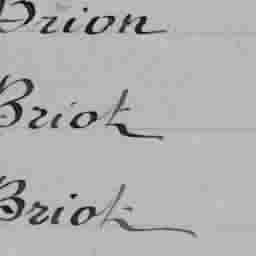 Brion
Briot
Briot